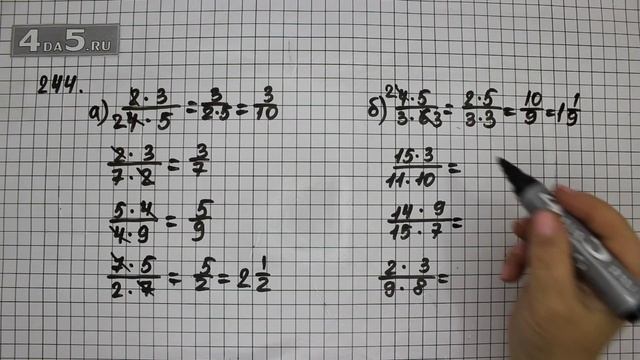 4DA5.RU
244.
а) 2·3/24·5 = 3/2·5 = 3/10
2·3/7·2 = 3/7
5·4/4·9 = 5/9
7·5/2·7 = 5/2 = 2 1/2
б) 24·5/3·63 = 2·5/3·3 = 10/9 = 1 1/9
15·3/11·10 =
14·9/15·7 =
2·3/9·8 =